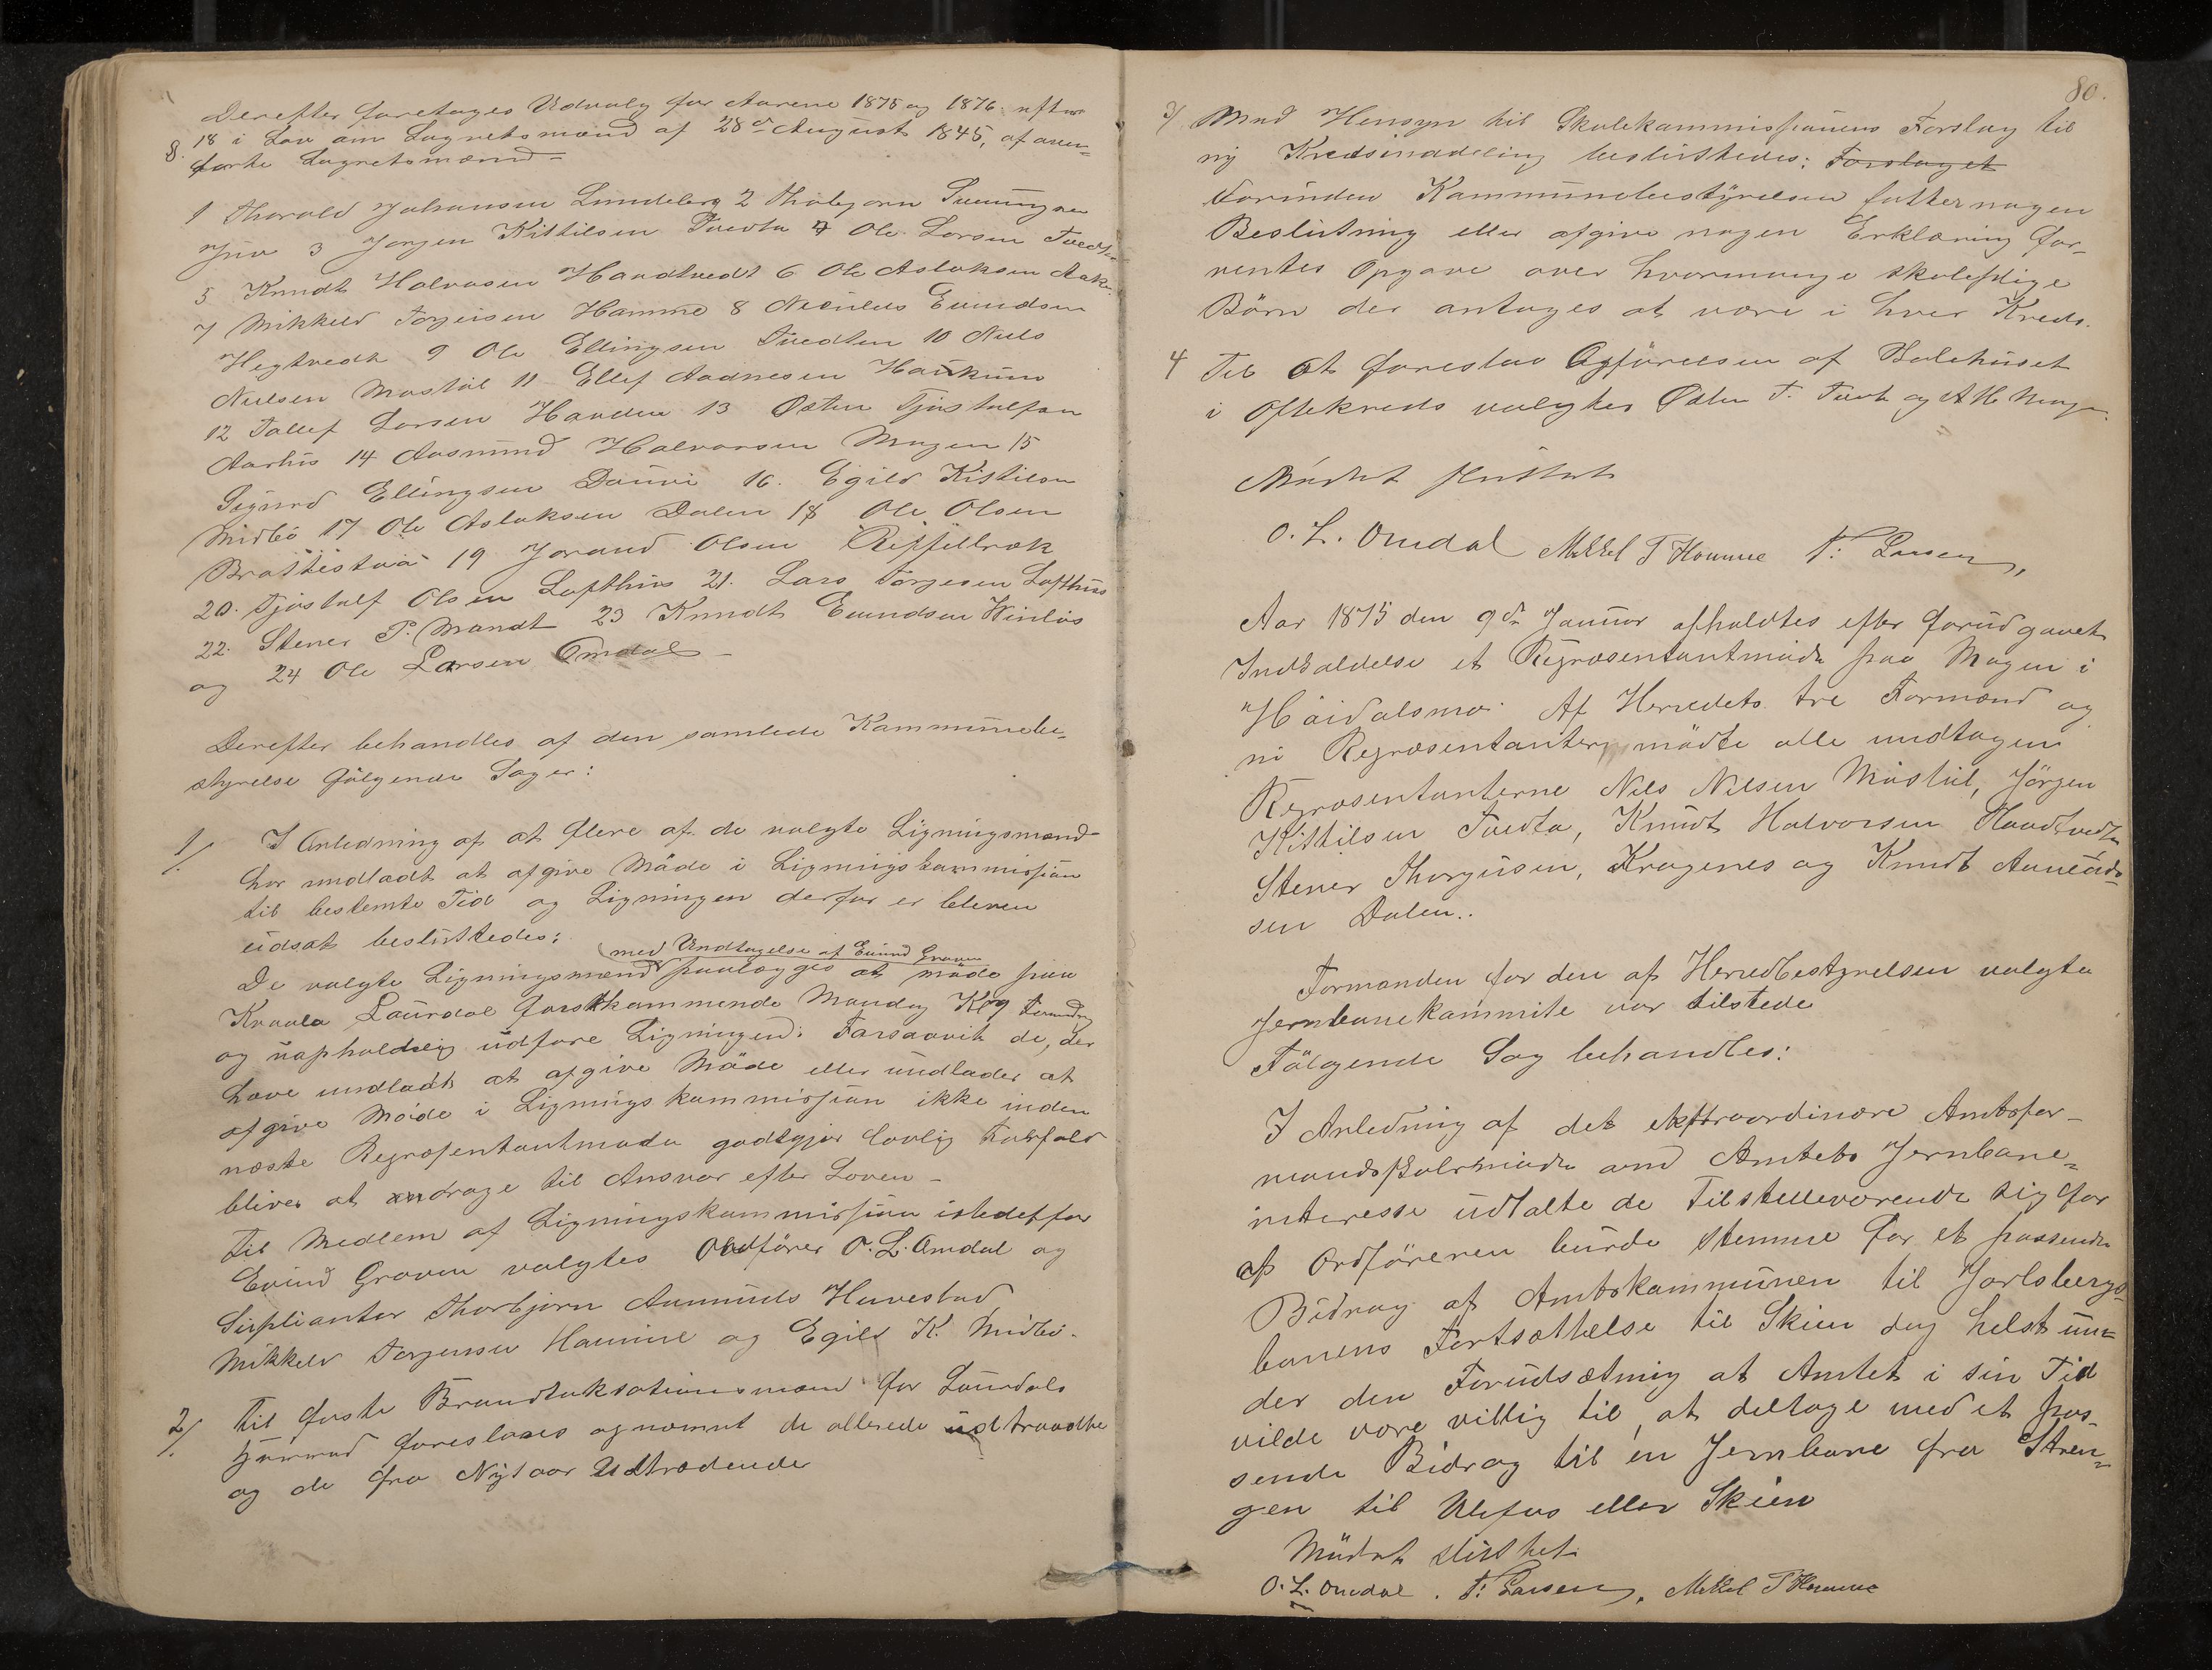 Derefter foretages Udvalg for Aarene 1875 og 1876 efter
§. 18 i Lov om Lagretsmænd af 28de August 1845, af oven-
førte Lagretsmænd -
1 Thorald Johansen Lundeberg 2 Thobjørn
Juv 3 Jørgen Kittilsen Tvedta 4 Ole Larsen
5 Knudt Halvorsen Haadtvedt 6 Ole Aslaksen
7 Mikkel Torjeisen Hamme 8
Hegtvedt 9 Ole Ellingsen Tvedten 10 Niels
Nielsen Mostøl 11 Ellef Aadnesen Haukum
12 Tallef Larsen Haaden 13 Østen Tjøstolfsen
Aarhus 14 Aasmund Halvorsen Mogen 15
Sigurd Ellingsen Dauvi 16. Egild Kittilsen
Midbö 17 Ole Aslaksen Dalen 18 Ole Olsen
Brattestua 19 Jorand Olsen
20. Tjøstolf Olsen Lofthus 21. Lars Torjesen Lofthus
22. Stener P. Mandt 23 Knudt Evindsen Vinlös
og 24 Ole Larsen Omdal -
Derefter behandles af den samlede Kommunebe-
styrelse følgende Sager:
1/. I Anledning af at flere af de valgte Ligningsmænd
har undladt at afgive Møde i Ligningskommission
til bestemte Tid og Ligningen derfor er bleven
udsat besluttedes:
(med Undtagelse af Evind Graven
De valgte Ligningsmænd paalægges at møde paa
Kraala Laurdal førstkommende Mandag Kl 9 Formdg
og uopholdelig udføre Ligningen. Forsaavit de, der
have undladt at afgive Møde eller undlader at
afgive Møde i Ligningskommission ikke inden
næste Repræsentantmøde godtgjør lovlig Forfald
bliver at andrage til Ansvar efter Loven -
Til Medlem af Ligningskommission istedetfor
Evind Graven valgtes Ordfører O. L. Omdal og
Suplianter Thorbjørn Aanunds Huvestad
Mikkel Torjusen Hamme og Egild K. Midbö.
2/. Til faste Brandtaksationsmænd for Laurdals
foreslaaes opnævnt de allerede udtraadte
og de fra Nytaar Udtrædende
80.
3/ Med Hensyn til Skolekommissionens Forslag til
ny Kredsinddeling besluttedes: Forslaget
Forinden Kommunebestyrelsen fatter nogen
Beslutning eller afgive nogen Erklæring for-
ventes Opgave over hvormange skolepligtige
Börn der antages at være i hver Kreds.
4 Til at forestaa Opførelsen af Skolehuset
i Oftekreds valgtes Østen T. Tveit og A H Mogen.
Mødet sluttet
O. L. Omdal Mikkel T Homme T: Larsen,
Aar 1875 den 9de Januar afholdtes efter forudgaaet
Indkaldelse et Repræsentantmøde paa Mogen i
Høidalsmo. Af Herredets tre Formænd og
ni Repræsentanter mødte alle undtagen
Repræsentanterne Nils Nilsen Mostøl, Jörgen
Kittilsen Tvedta, Knudt Halvorsen Haadtvedt
Stener Thorgusen, Kragenes og Knudt Aanund-
sen Dalen..
Formanden for den af Herredbestyrelsen valgte
Jernbanekommite var tilstede
Følgende Sag behandles:
I Anledning af det extraordinære Amtsfor-
mandskabsmøde om Amtets Jernbane-
interesse udtalte de Tilstedeværende sig for
at Ordføreren burde stemme for et passende
Bidrag af Amtskommunen til Jarlsbergs-
banens Fortsættelse til Skien dog helst un-
der den Forudsætning at Amtet i sin Tid
vilde være villig til at deltage med et pas-
sende Bidrag til en Jernbane fra Stren-
gen til Ulefos eller Skien
Mødet sluttet
O. L. Omdal. T: Larsen, Mikkel T Homme